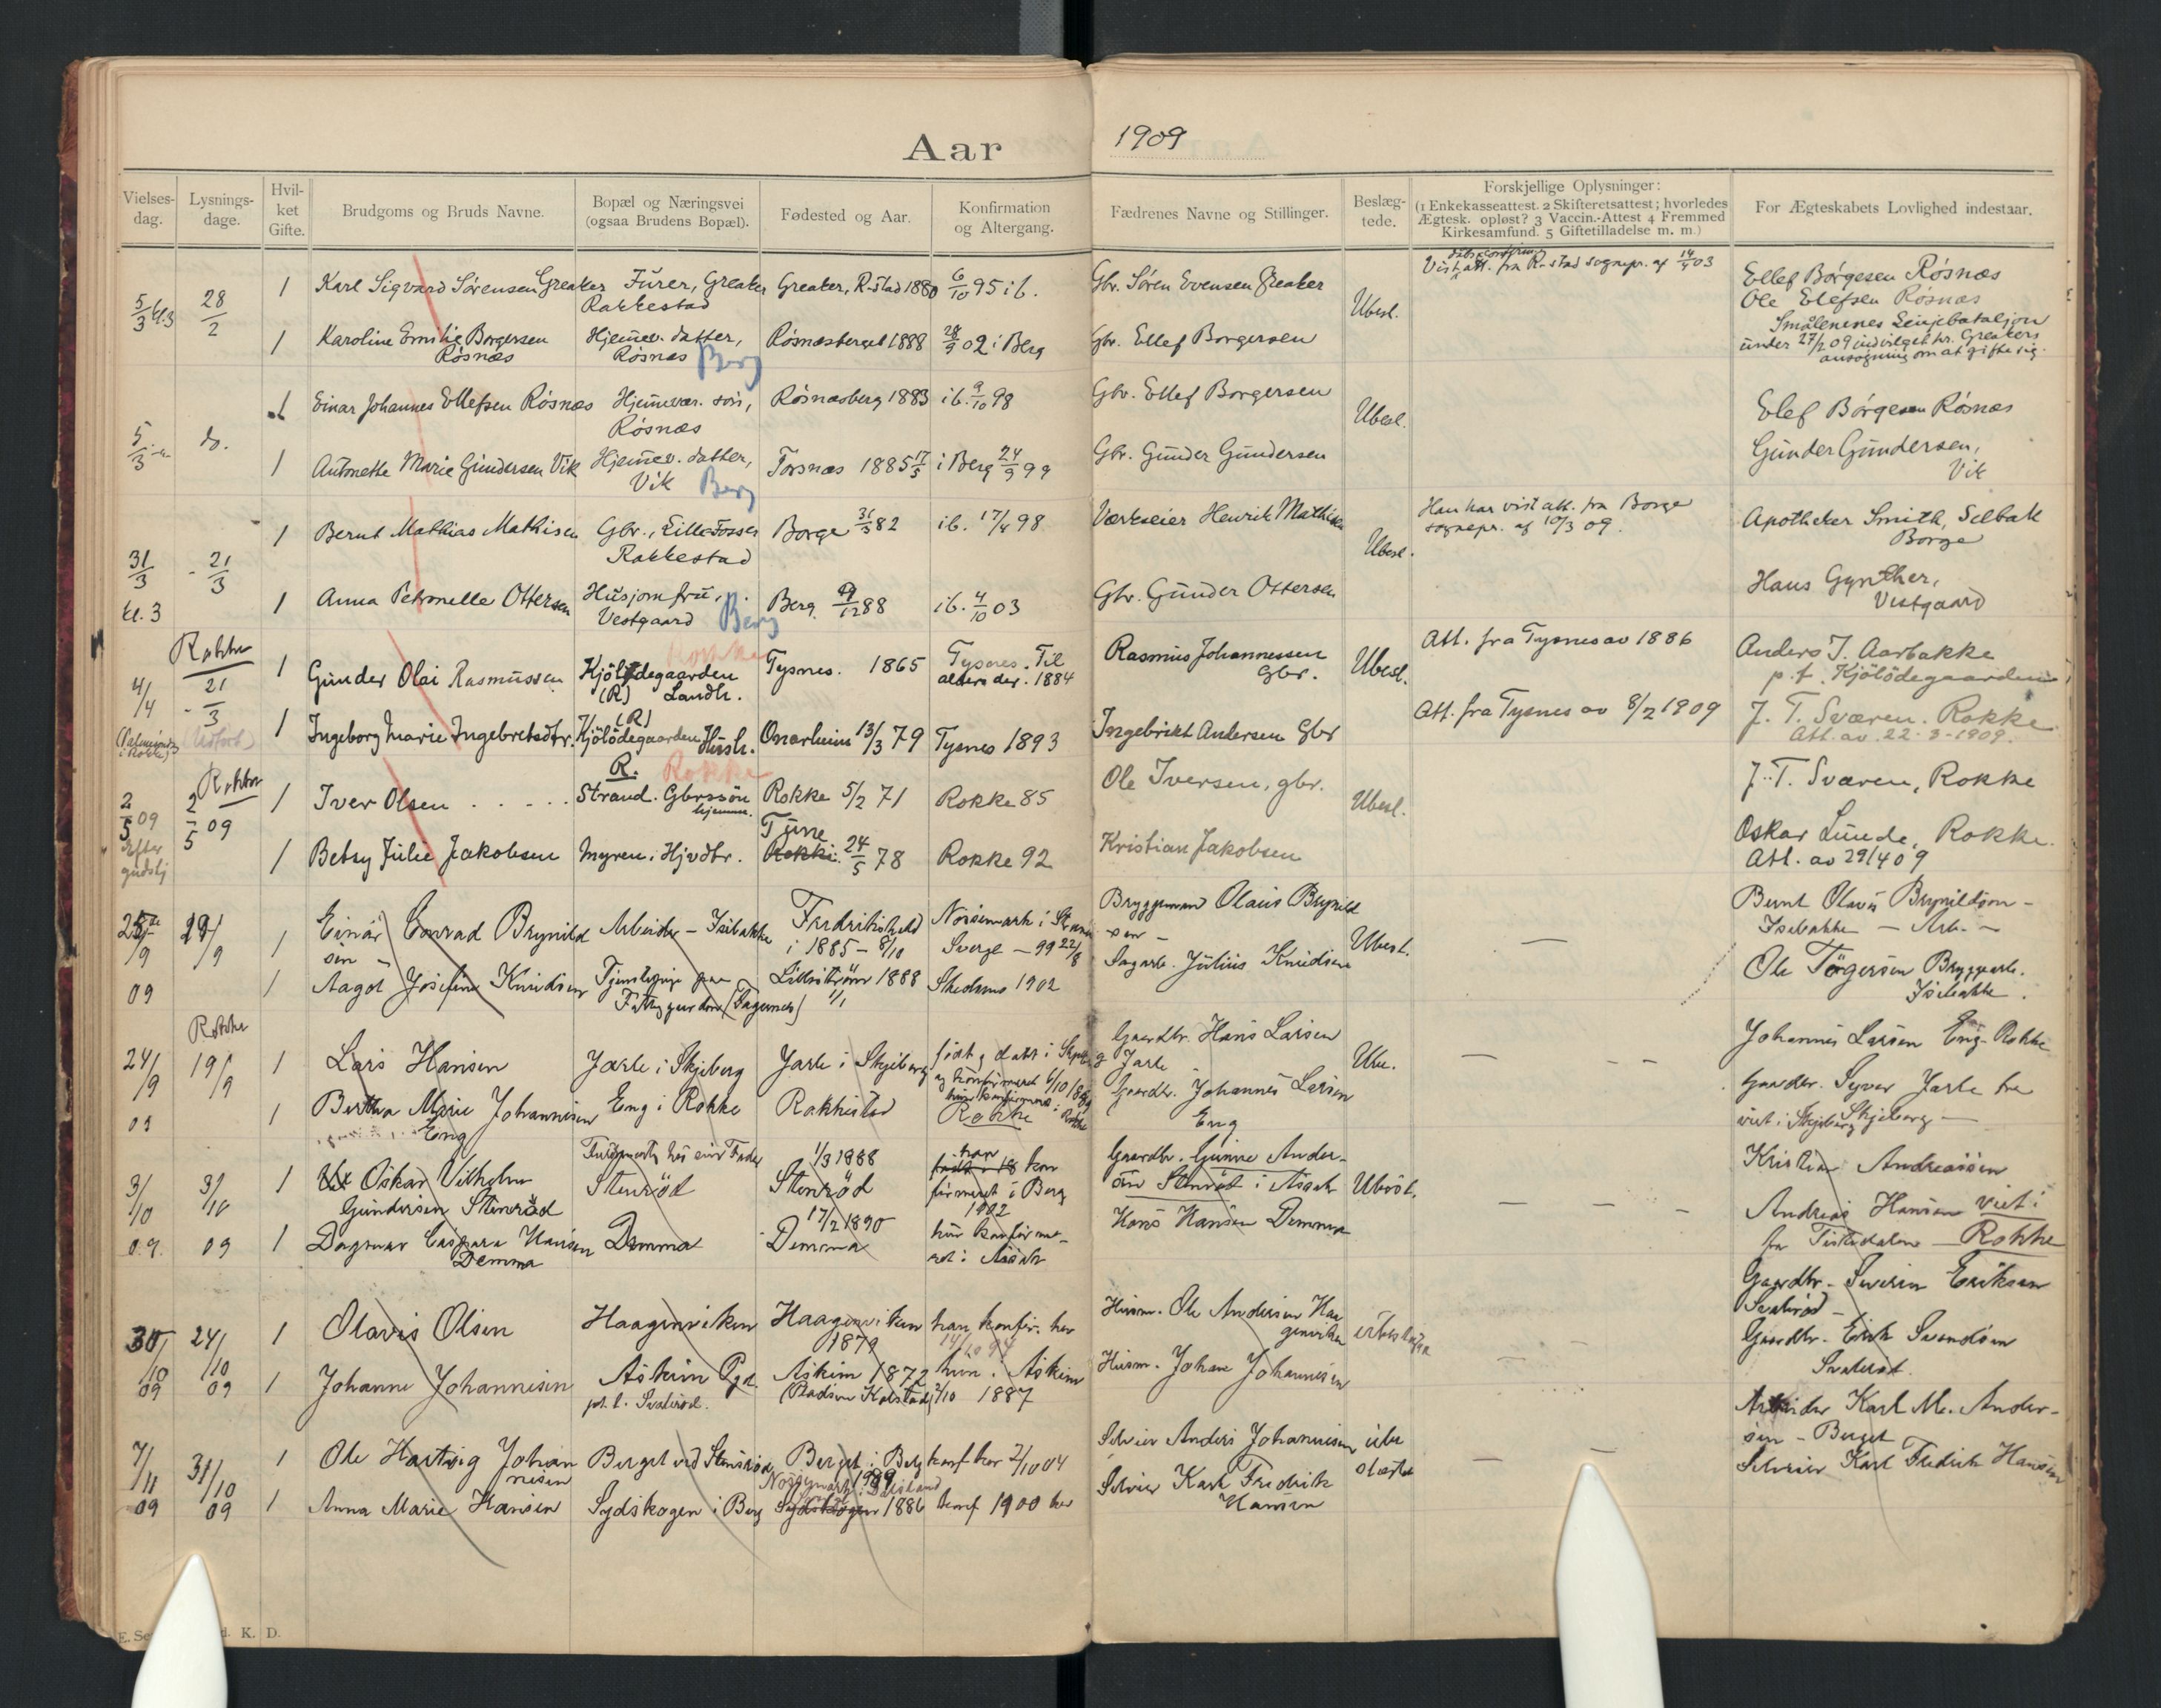 Aar
1909
Vielses-
dag.
Lysnings-
dage.
Hvil-
ket
Gifte.
Brudgoms og Bruds Navne.
Bopæl og Næringsvei
(ogsaa Brudens Bopæl).
Fødested og Aar.
Konfirmation
og Altergang.
Fædrenes Navne og Stillinger.
Beslæg-
tede.
Forskjellige Oplysninger:
(1 Enkekasseattest. 2 Skifteretsattest; hvorledes
Ægtesk. opløst? 3 Vaccin.-Attest 4 Fremmed
Kirkesamfund. 5 Giftetilladelse m. m.)
For Ægteskabets Lovlighed indestaar.
5/3 kl.3
28/2
1 Karl Sigvard Sørensen Greaker
Furer, Greaker
Rakkestad
Greaker, R-stad 1880
6/10 95 ib.
Gbr. Søren Evensen Greaker
Ubesl.
Vist att. fra R-stad sognepr. af 14/4 03
Ellef Börgesen Rösnæs
Ole Elefsen Rösnæs
Smålenenes Linjebataljon
under 27/2 09 indvilget hr. Greakers
ansøgning om at gifte sig.
1 Karoline Emilie Borgersen
Rösnæs
Hjemmev. datter,
Rösnæs Berg
Rösnæsberget 1888
28/9 02 i Berg
Gbr. Ellef Borgersen
5/3
do.
1 Einar Johannes Ellefsen Rösnæs
Hjemmevær. søn,
Rösnæs
Rösnæsberg 1883
ib. 9/10 98
Gbr. Ellef Borgersen
Ubesl.
Elef Börgesen Rösnæs
1 Antonette Marie Gundersen Vik
Hjemmev. datter,
Vik Berg
Torsnæs 1885 17/5
i Berg 24/9 99
Gbr. Gunder Gundersen
Gunder Gundersen,
Vik
31/3
kl. 3
21/3
1 Bernt Mathias Mathisen
Gbr., Lille Fosser
Rakkestad
Borge 31/3 82
ib. 17/4 98
Værkseier Henrik Mathisen
Ubesl.
Han har vist att. fra Borge
sognepr. af 10/3 09.
Apotheker Smith, Selbak
Borge
1 Anna Petronelle Ottersen
Husjomfru,
Vestgaard Berg
Berg 88
ib. 4/10 03
Gbr. Gunder Ottersen
Hans Gynther,
Vestgaard
Rokke
4/4
21/3
1 Gunder Olai Rasmussen
Kjölödegaarden
(R) Landh.
Tysnes. 1865
Tysnes. Til
alters der. 1884
Rasmus Johannessen
Gbr.
Ubesl.
Att. fra Tysnes av 1886
Anders J. Aarbakke
p.t. Kjölödegaarden
1 Ingeborg Marie Ingebretsdtr.
(R)
Kjölödegaarden Hush.
Onarheim 13/3 79
Tysnes 1893
Ingebrikt Andersen Gbr
Att. fra Tysnes av 8/2 1909
J. T. Sværen. Rokke
Att. av 22-3-1909.
Rokke
2/5 09
Efter
gudstj
2/5 09
1 Iver Olsen
R. Rokke
Strand. Gbrssön
hjemme.
Rokke 5/2 71
Rokke 85
Ole Iversen, gbr.
Ubesl.
J. T. Sværen, Rokke
1 Betsy Julie Jakobsen
Myren. Hjvdtr.
Tune
Rokke 24/5 78
Rokke 92
Kristian Jakobsen
Oskar Lunde, Rokke.
Att. av 29/4 09
25/9
09
19/9
1 Einar Conrad Brynild
sen
Arbeider – Isebakke
Fredrikshald
i 1885 – 8/10
Sverge – 99 22/8
Bryggemand Olaus Brynild
sen –
Ubesl.
Bernt Olavs Brynildsen –
Isebakke – Arb. –
1 Aagot Josefine Knudsen
Lillestrøm 1888
1/1
Skedsmo 1902
Sagarb. Julius Knudsen
Ole Torgersen Bryggearb.
Isebakke.
Rokke
24/9
09
19/9
1 Lars Hansen
Jarle i Skjeberg
Jarle i Skjeberg
Gaardbr. Hans Larsen
Jarle
Ube.
Johannes Larsen Eng-Rokke
1 Berthea Marie Johannesen
Eng
Eng i Rokke
Rakkestad
Rokke
Gaardbr. Johannes Larsen
Eng
Gaardbr. Syver Jarle
viet i Skjeberg
3/10
09.
3/10
09
1 Oskar Vilhelm
Gundersen Stenrød
Stenrød
1/3 1888
Stenrød
han
konfirmeret i Berg
1902
Gaardbr. Gunne Ander-
sen Stenrød i Asak
Kristian Andreassen
1 Dagmar Caspara Hansen
Demma
Demma
17/2 1890
Demma
hun konfirme-
ret i Asak
Hans Hansen Demma
Andreas Hansen viet i
Rokke
30/10
09
24/10
09
1 Olavis Olsen
Haagenviken
Haagenviken
1879
han konfir. her
Husm. Ole Andersen Haa
genviken
Gaardbr. Severin Eriksen
Svaleröd –
1 Johanne Johannesen
Askim Pgd.
pt. i. Svaleröd.
Askim 1872
hun i Askim
1887
Husm. Johan Johannesen
Gaardbr. Erik Svendsen
Svaleröd.
7/11
09
31/10
09
1 Ole Hartvig Johan
nesen
Berget ved Stenröd
Berget i Berg
konf her 2/10 04
Selveier Anders Johannesen
ube
slægtet
Arbeider Karl M. Ander-
sen – Berget
1 Anna Marie Hansen
Sydskogen i Berg
Sydskogen 1886
konf 1900 her
Selveier Karl Fredrik
Hansen
Selveier Karl Fredrik Hansen
K. D.